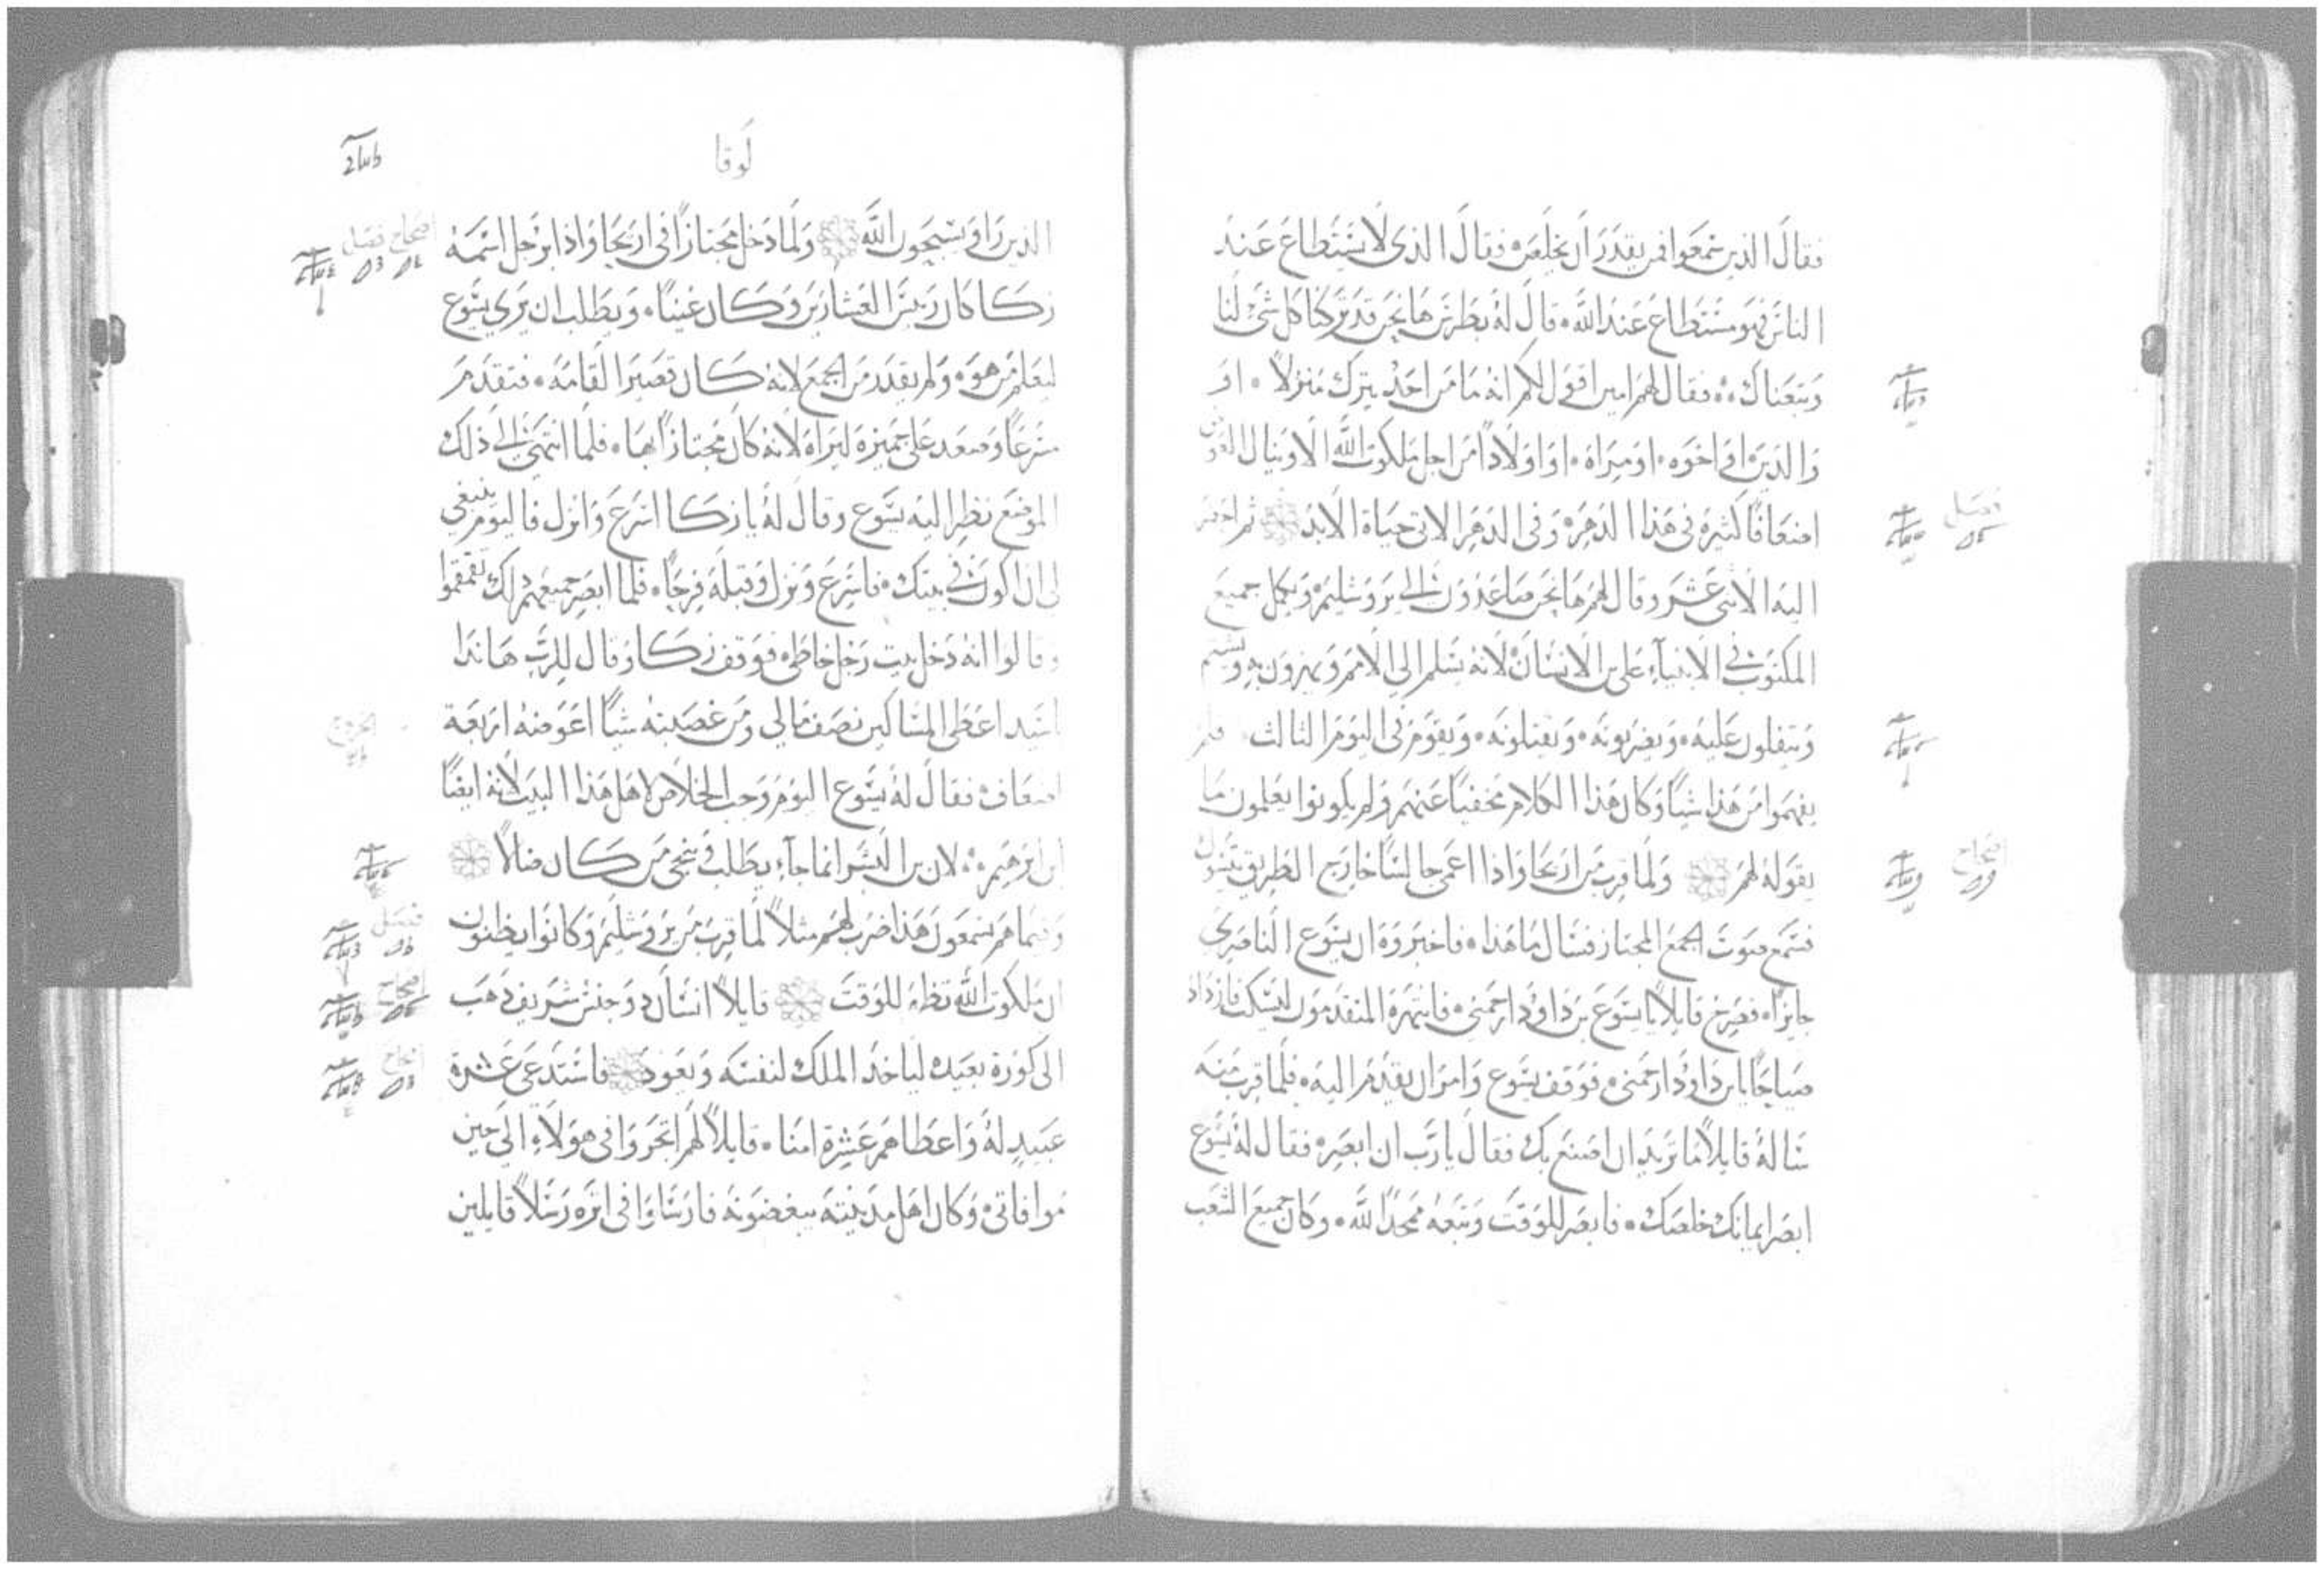 فقال الذين سمعوا فمن يقدر ان يخلص فقال الذى لا يستطاع عند
الناس فهو مستطاع عند الله قال له بطرس ها نحن قد تركنا كل شئ لنا
وتبعناك فقال لهم امين اقول لكم انه ما من احد يترك منزلاً او
والدين او اخوه او ميراة او اولاداً من اجل ملكوت الله الا وينال
اضعافاً كثيره فى هذا الدهر وفى الدهر الاتى حياة الابد ثم احضر
فصل
اليه الاثنى عشر وقال لهم ها نحن صاعدون الى يروشليم ويكمل جميع
المكتوب فى الانبيآء على بن الانسان لانه يسلم الى الامم ويهزون به ويشتم
ويتفلون عليه ويضربونه ويقتلونه ويقوم فى اليوم الثالث فلم
يفهموا من هذا شياً وكان هذا الكلام مخفياً عنهم ولم يكونوا يعلمون ما
يقوله لهم ولما قرب من اريحا واذا اعمى جالساً خارج الطريق يتسول
اصحاح
فسمع صوت الجمع المجتاز فسال ما هذا فاخبروه ان يسوع الناصرى
جايزاً فصرخ قايلاً يا يسوع بن داوود ارحمنى فانتهره المتقدمون ليسكت فازداد
صياحاً يا بن داوود ارحمنى فوقف يسوع وامر ان يقدم اليه فلما قرب منه
ساله قايلاً ما تريد ان اصنع بك فقال يا رب ان ابصر فقال له يسوع
ابصر ايمانك خلصك فابصر للوقت وتبعه ممجداً لله وكان جميع الشعب
لوقا
الذين راوا يسبحون الله ولما دخل مجتازاً فى اريحا واذا برجل اسمه
اصحاح فصل
زكا كان رييس العشارين وكان غنياً ويطلب ان يرى يسوع
ليعلم من هو ولم يقدر من الجمع لانه كان قصير القامه فتقدم
مسرعاً وصعد على جميزه ليراه لانه كان مجتازاً بها فلما انتهى الى ذلك
الموضع نظر اليه يسوع وقال له يا زكا اسرع وانزل فاليوم ينبغى
لى ان اكون فى بيتك فاسرع ونزل وقبله فرحاً فلما ابصر جميعهم ذلك تقمقموا
وقالوا انه دخل بيت رجل خاطى فوقف زكا وقال للرب هاندا
اسيد اعطى المساكين نصف مالى ومن غصبته شياً اعوضه اربعة
اضعاف فقال له يسوع اليوم وجب الخلاص لاهل هذا البيت لانه ايضاً
ابن ابرهيم لان بن البشر انما جآء يطلب وينجى من كان ضالاً
وفيما هم يسمعون هذا ضرب لهم مثلاً لما قرب من يروشليم وكانوا يظنون
فصل
ان ملكوت الله تظهر للوقت قايلاً انسان ذو جنس شريف ذهب
اصحاح
الى كورة بعيده لياخذ الملك لنفسه ويعود فاستدعى عشرة
اصحاح
عبيدٍ له واعطاهم عشرة امنا قايلاً لهم اتجروا فى هولآء الى حين
موافاتى وكان اهل مدينته يبغضونه فارسلوا فى اثره رسلاً قايلين